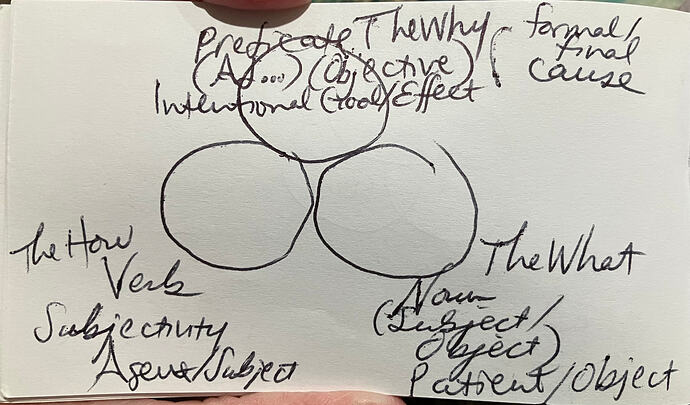 Predicate The Why
(As...) (Objective)
Intentional Goal/Effect
formal/
final
cause
The How
Verb
Subjectivity
Agent/Subject
The What
Noun
(Subject/
Object)
Patient/Object